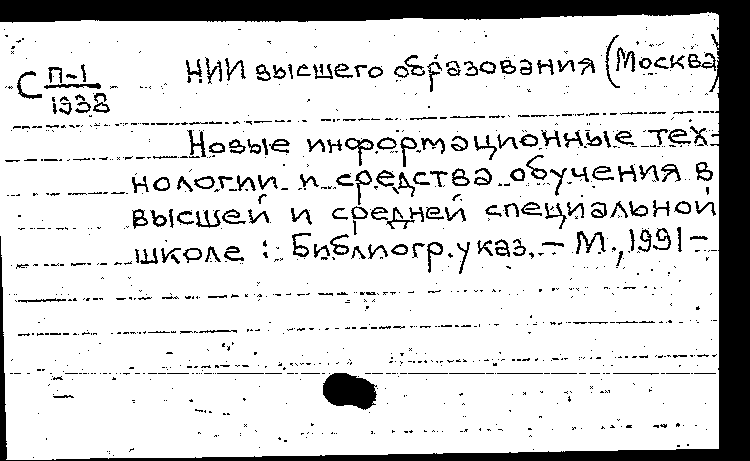 С П-1
1938
НИИ высшего образования (Москва)
Новые информационные тех-
нологии и средства обучения в
высшей и средней специальной
школе : Библиогр. указ. – М., 1991 –